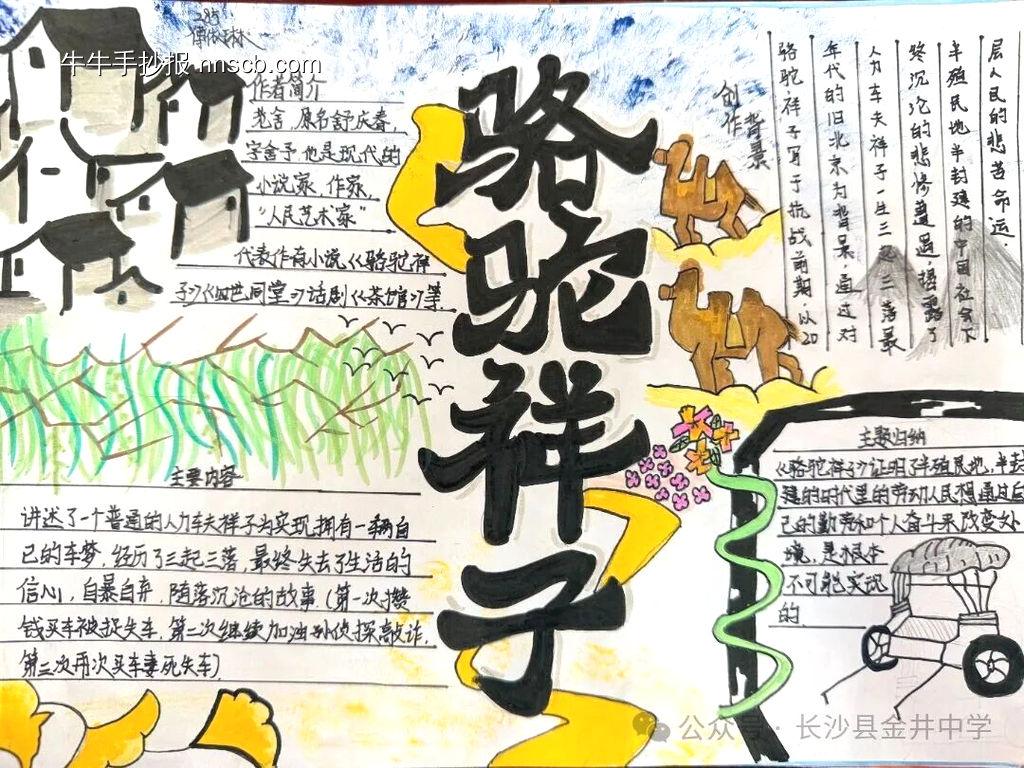 285
牛牛手抄报 nnscb.com
作者简介
老舍,原名舒庆春,
字舍予,他是现代的
小说家,作家,
“人民艺术家”
代表作有小说《骆驼祥
子》《四世同堂》话剧《茶馆》等
骆驼祥子
创作背景
骆驼祥子写于抗战前期,以20
年代的旧北京为背景,通过对
人力车夫祥子一生三起三落最
终沉沦的悲惨遭遇,揭露了
半殖民地半封建的中国社会下
层人民的悲苦命运.
主要内容
讲述了一个普通的人力车夫祥子为实现拥有一辆自
己的车梦,经历了三起三落,最终失去了生活的
信心,自暴自弃,堕落沉沦的故事.(第一次攒
钱买车被捉失车,第二次继续加油却侦探敲诈,
第三次再次买车妻死失车)
主题归纳
《骆驼祥子》证明了半殖民地,半封
建的时代里的劳动人民想通过自
己的勤劳和个人奋斗来改变处
境,是根本
不可能实现
的
公众号·长沙县金井中学